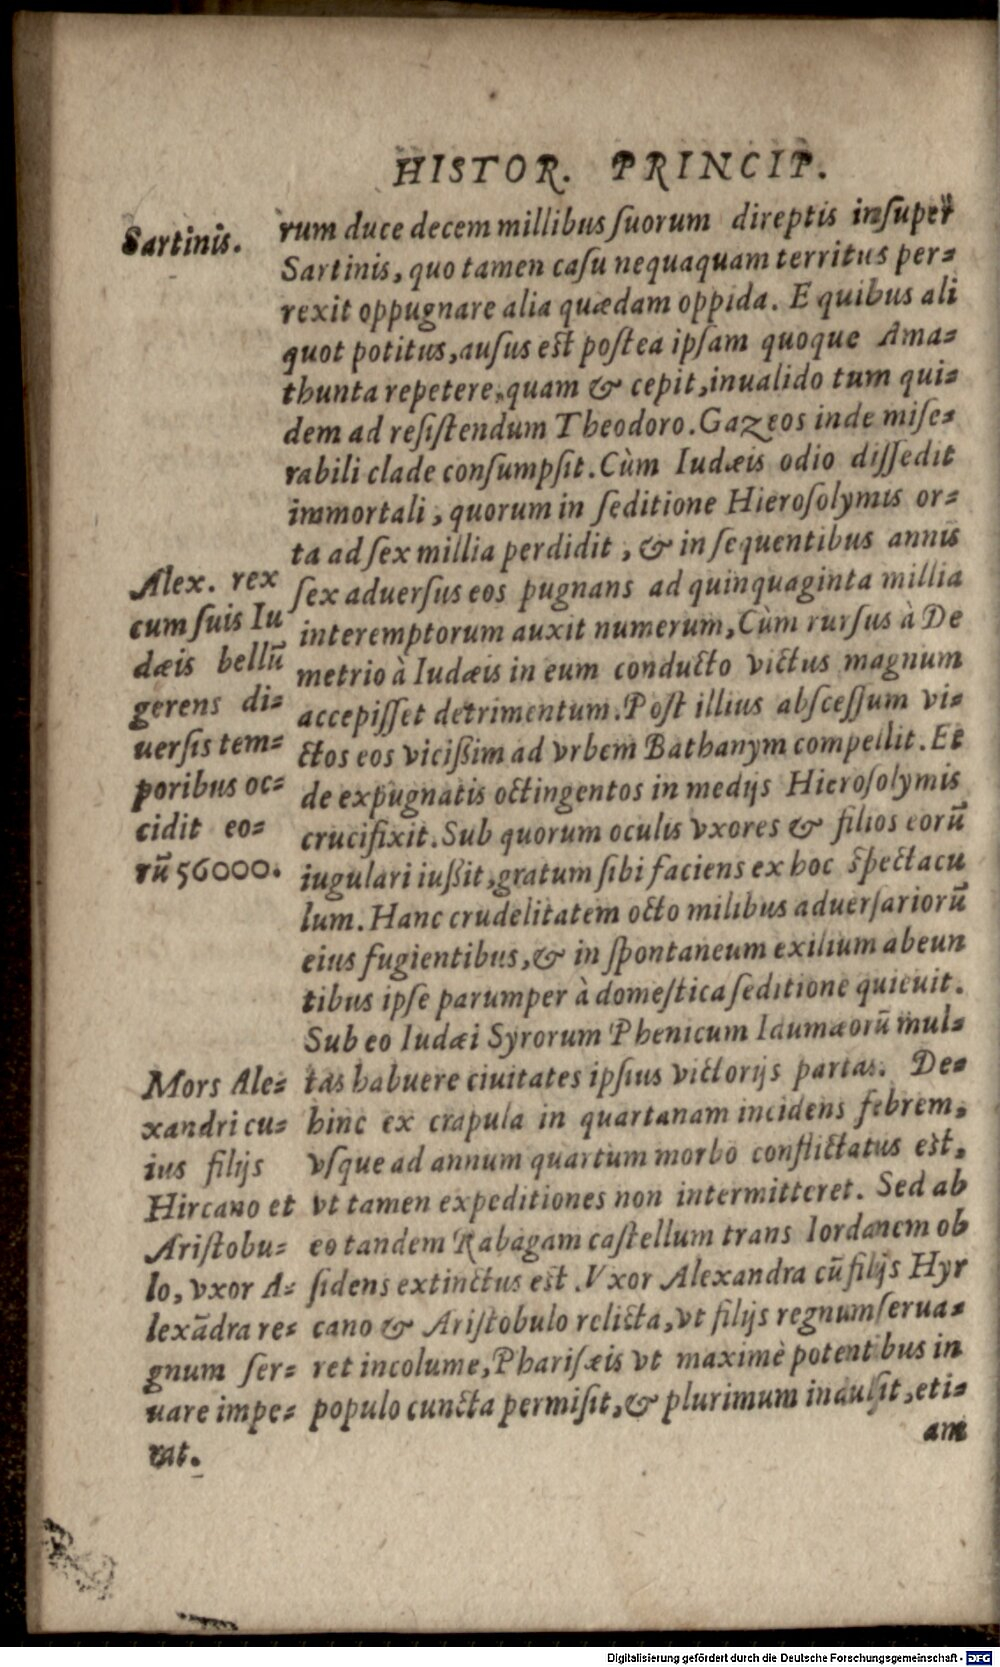 HISTOR. PRINCIP.
Sartinis.
rum duce decem millibus ſuorum direptis inſuper
Sartinis, quo tamen caſu nequaquam territus per-
rexit oppugnare alia quædam oppida. E quibus ali
quot potitus, auſus est poſtea ipſam quoque Ama-
thunta repetere, quam & cepit, inualido tum qui-
dem ad reſiſtendum Theodoro. Gazeos inde miſe-
rabili clade conſumpſit. Cùm Iudæis odio diſſedit
immortali, quorum in ſeditione Hieroſolymis or-
ta ad ſex millia perdidit, & in ſequentibus annis
ſex aduerſus eos pugnans ad quinquaginta millia
interemptorum auxit numerum, Cùm rurſus à De
metrio à Iudæis in eum conducto victus magnum
accepiſſet detrimentum. Poſt illius abſceſſum vi-
ctos eos vicißim ad vrbem Bathanym compellit. Et
de expugnatis octingentos in medijs Hieroſolymis
crucifixit. Sub quorum oculis vxores & filios eorū
iugulari iußit, gratum ſibi faciens ex hoc ſpectacu
lum. Hanc crudelitatem octo milibus aduerſariorū
eius fugientibus, & in ſpontaneum exilium abeun
tibus ipſe parumper à domeſtica ſeditione quieuit.
Sub eo Iudæi Syrorum Phenicum Idumæorū mul-
tas habuere ciuitates ipſius victorijs partas. De-
hinc ex crapula in quartanam incidens febrem,
vſque ad annum quartum morbo conflictatus est,
vt tamen expeditiones non intermitteret. Sed ab
eo tandem Rabagam caſtellum trans Iordanem ob
ſidens extinctus est. Vxor Alexandra cū filijs Hyr
cano & Ariſtobulo relicta, vt filijs regnum ſerua-
ret incolume, Phariſæis vt maximè potentibus in
populo cuncta permiſit, & plurimum indulſit, eti-
am
Alex. rex
cum ſuis Iu
dæis bellū
gerens di-
uerſis tem-
poribus oc-
cidit eo-
rū 56000.
Mors Ale-
xandri cu-
ius filijs
Hircano et
Ariſtobu-
lo, vxor A-
lexādra re-
gnum ſer-
uare impe-
rat.
Digitalisierung gefördert durch die Deutsche Forschungsgemeinschaft - DFG